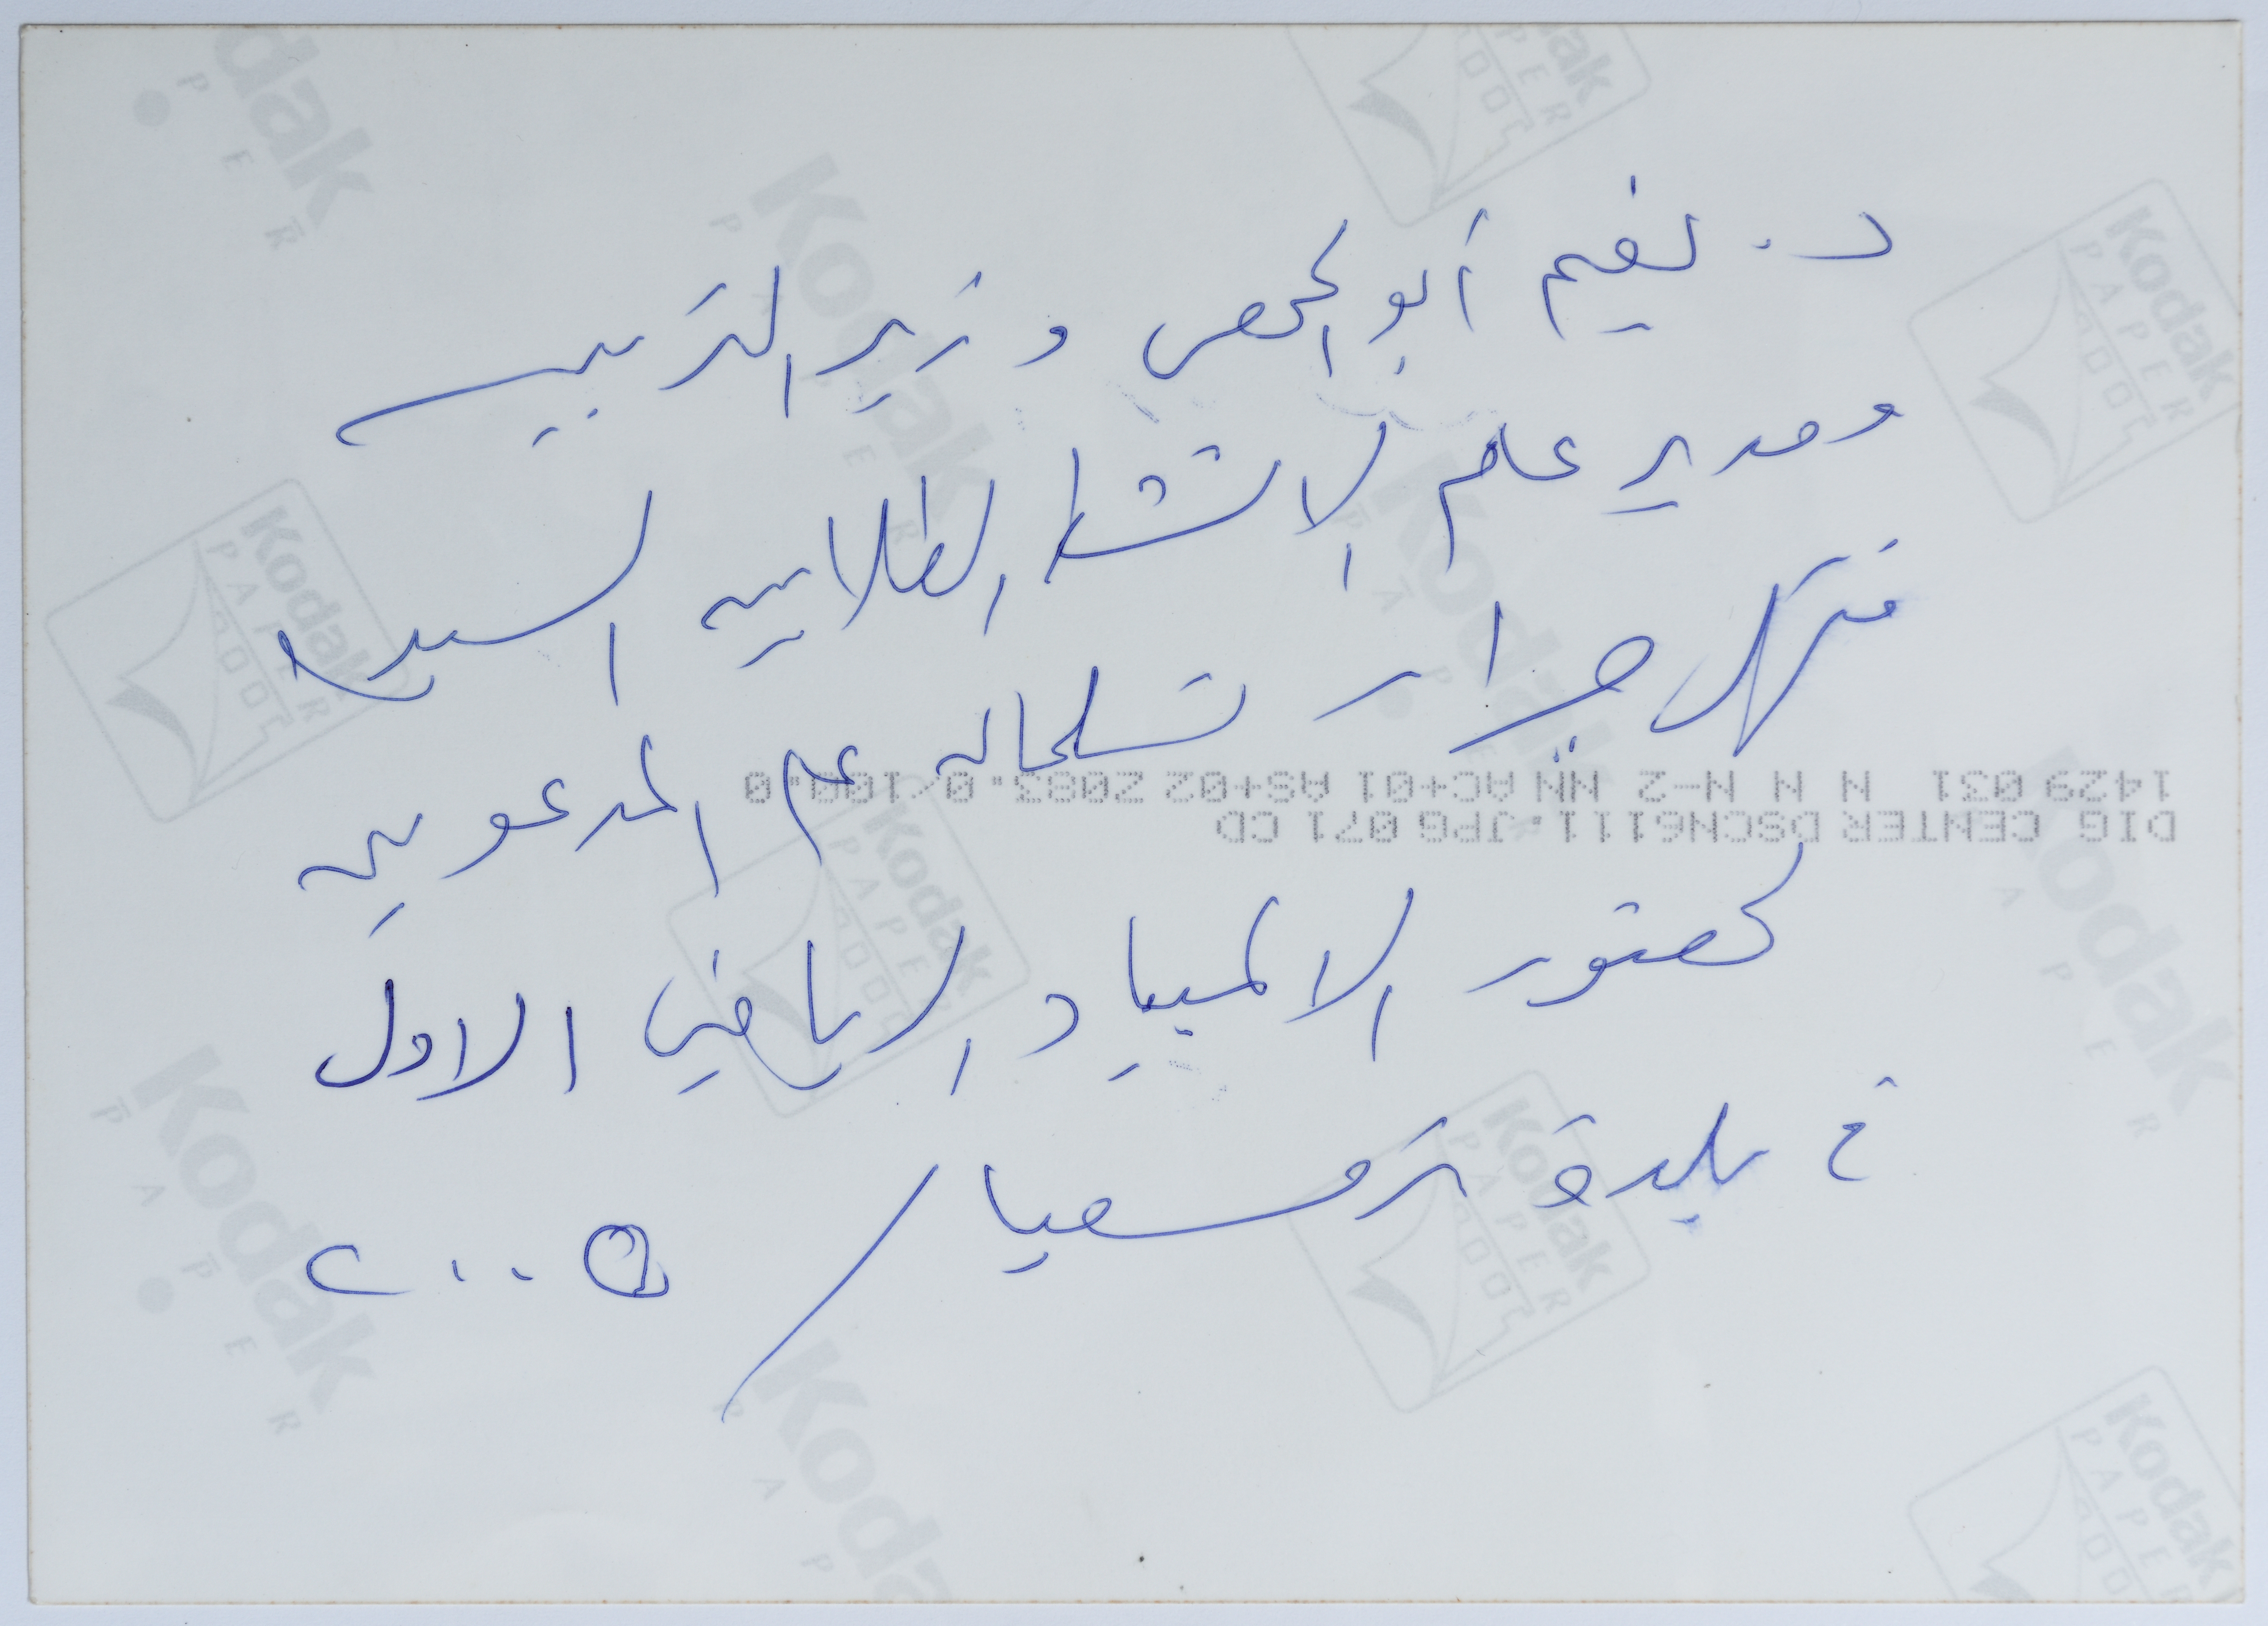 د. نعيم أبو الحمص وزير التربية
ومدير عام الانشطة الطلابية السيد
جرار
المدعوين
لحضور الالمبياد الرياضي الاول
في بلدة ترمسعيا / ٢٠٠٥
1429 031 N N N N-2 NN AC+01 AS+02 2083.0/100.0
DIG CENTER DSCN6111.JPG 071 CD
Kodak
PAPER